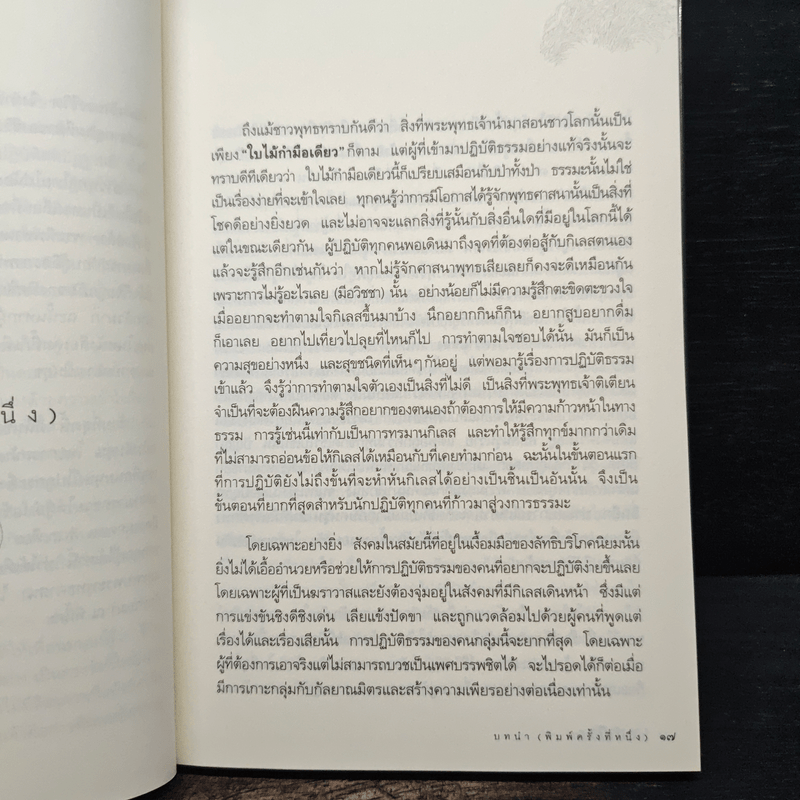 นึ่ง)
ถึงแม้ชาวพุทธทราบกันดีว่า สิ่งที่พระพุทธเจ้านำมาสอนชาวโลกนั้นเป็น
เพียง “ใบไม้กำมือเดียว” ก็ตาม แต่ผู้ที่เข้ามาปฏิบัติธรรมอย่างแท้จริงนั้นจะ
ทราบดีทีเดียวว่า ใบไม้กำมือเดียวนี้ก็เปรียบเสมือนกับป่าทั้งป่า ธรรมะนั้นไม่ใช่
เป็นเรื่องง่ายที่จะเข้าใจเลย ทุกคนรู้ว่าการมีโอกาสได้รู้จักพุทธศาสนานั้นเป็นสิ่งที่
โชคดีอย่างยิ่งยวด และไม่อาจจะแลกสิ่งที่รู้นั้นกับสิ่งอื่นใดที่มีอยู่ในโลกนี้ได้
แต่ในขณะเดียวกัน ผู้ปฏิบัติทุกคนพอเดินมาถึงจุดที่ต้องต่อสู้กับกิเลสตนเอง
แล้วจะรู้สึกอีกเช่นกันว่า หากไม่รู้จักศาสนาพุทธเสียเลยก็คงจะดีเหมือนกัน
เพราะการไม่รู้อะไรเลย (มีอวิชชา) นั้น อย่างน้อยก็ไม่มีความรู้สึกตะขิดตะขวงใจ
เมื่ออยากจะทำตามใจกิเลสขึ้นมาบ้าง นึกอยากกินก็กิน อยากสูบอยากดื่ม
ก็เอาเลย อยากไปเที่ยวไปลุยที่ไหนก็ไป การทำตามใจชอบได้นั้น มันก็เป็น
ความสุขอย่างหนึ่ง และสุขชนิดที่เห็นๆกันอยู่ แต่พอมารู้เรื่องการปฏิบัติธรรม
เข้าแล้ว จึงรู้ว่าการทำตามใจตัวเองเป็นสิ่งที่ไม่ดี เป็นสิ่งที่พระพุทธเจ้าติเตียน
จำเป็นที่จะต้องฝืนความรู้สึกอยากของตนเองถ้าต้องการให้มีความก้าวหน้าในทาง
ธรรม การรู้เช่นนี้เท่ากับเป็นการทรมานกิเลส และทำให้รู้สึกทุกข์มากกว่าเดิม
ที่ไม่สามารถอ่อนข้อให้กิเลสได้เหมือนกับที่เคยทำมาก่อน ฉะนั้นในขั้นตอนแรก
ที่การปฏิบัติยังไม่ถึงขั้นที่จะห้ำหั่นกิเลสได้อย่างเป็นชิ้นเป็นอันนั้น จึงเป็น
ขั้นตอนที่ยากที่สุดสำหรับนักปฏิบัติทุกคนที่ก้าวมาสู่วงการธรรมะ
โดยเฉพาะอย่างยิ่ง สังคมในสมัยนี้ที่อยู่ในเงื้อมมือของลัทธิบริโภคนิยมนั้น
ยิ่งไม่ได้เอื้ออำนวยหรือช่วยให้การปฏิบัติธรรมของคนที่อยากจะปฏิบัติง่ายขึ้นเลย
โดยเฉพาะผู้ที่เป็นฆราวาสและยังต้องจุ่มอยู่ในสังคมที่มีกิเลสเดินหน้า ซึ่งมีแต่
การแข่งขันชิงดีชิงเด่น เลียแข้งปัดขา และถูกแวดล้อมไปด้วยผู้คนที่พูดแต่
เรื่องได้และเรื่องเสียนั้น การปฏิบัติธรรมของคนกลุ่มนี้จะยากที่สุด โดยเฉพาะ
ผู้ที่ต้องการเอาจริงแต่ไม่สามารถบวชเป็นเพศบรรพชิตได้ จะไปรอดได้ก็ต่อเมื่อ
มีการเกาะกลุ่มกับกัลยาณมิตรและสร้างความเพียรอย่างต่อเนื่องเท่านั้น
บทนำ (พิมพ์ครั้งที่หนึ่ง) ๑๗